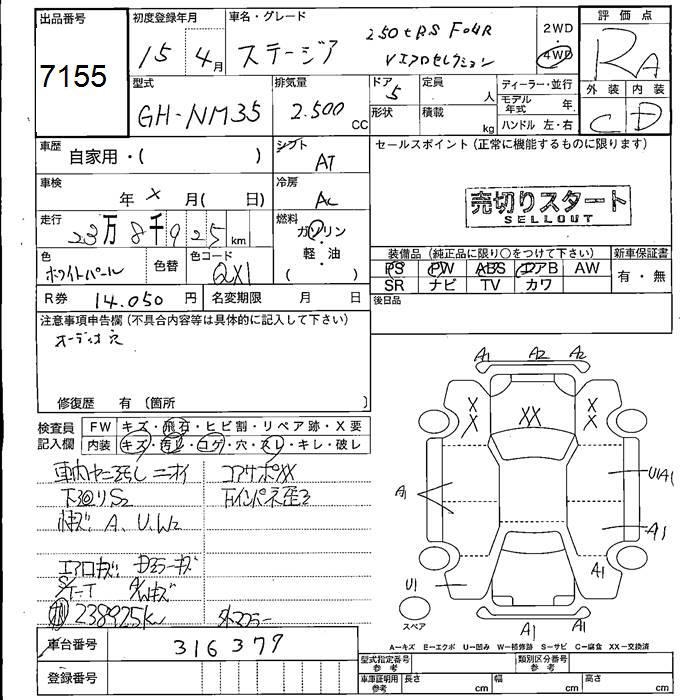 出品番号
7155
初度登録年月
15 4月
車名・グレード
ステージア
250tRS Four
Vエアロセレクション
2WD
・
4WD
評価点
RA
外装 内装
C D
型式
GH-NM35
排気量
2.500 CC
ドア
5
形状
定員
人
積載
kg
ディーラー・並行
モデル年式 年
ハンドル 左・右
車歴
自家用・( )
シフト
AT
セールスポイント(正常に機能するものに限ります)
売切りスタート
SELLOUT
車検
年 × 月( 日)
冷房
AC
走行
23万8千925km
燃料
ガソリン
・
軽・油
( )
色
ホワイトパール
色替
色コード
QX1
装備品(純正品に限り○をつけて下さい)
新車保証書
PS PW ABS エアB AW
SR ナビ TV カワ
有・無
R券 14.050円
名変期限 月 日
後日品
注意事項申告欄(不具合内容等は具体的に記入して下さい)
オーディオ穴
修復歴 有(箇所 )
検査員
記入欄
FW キズ・飛石・ヒビ割・リペア跡・X要
内装 キズ・汚レ・コゲ・穴・スレ・キレ・破レ
車内ヤニヨゴレ ニオイ
コアサポXX
下廻りS2
キズ A、U、W2
エアロキズ
A/Wキズ
238925km
車台番号 316379
登録番号
A1 A2 A2
X
X
XX
X
X
A1
U1A1
A1
A1
U1
A1 A1
スペア
A-キズ E-エクボ U-凹み W-補修跡 S-サビ C-腐食 XX-交換済
型式指定番号
参考
類別区分番号
参考
車庫証明用
参考
長さ cm
幅 cm
高さ cm